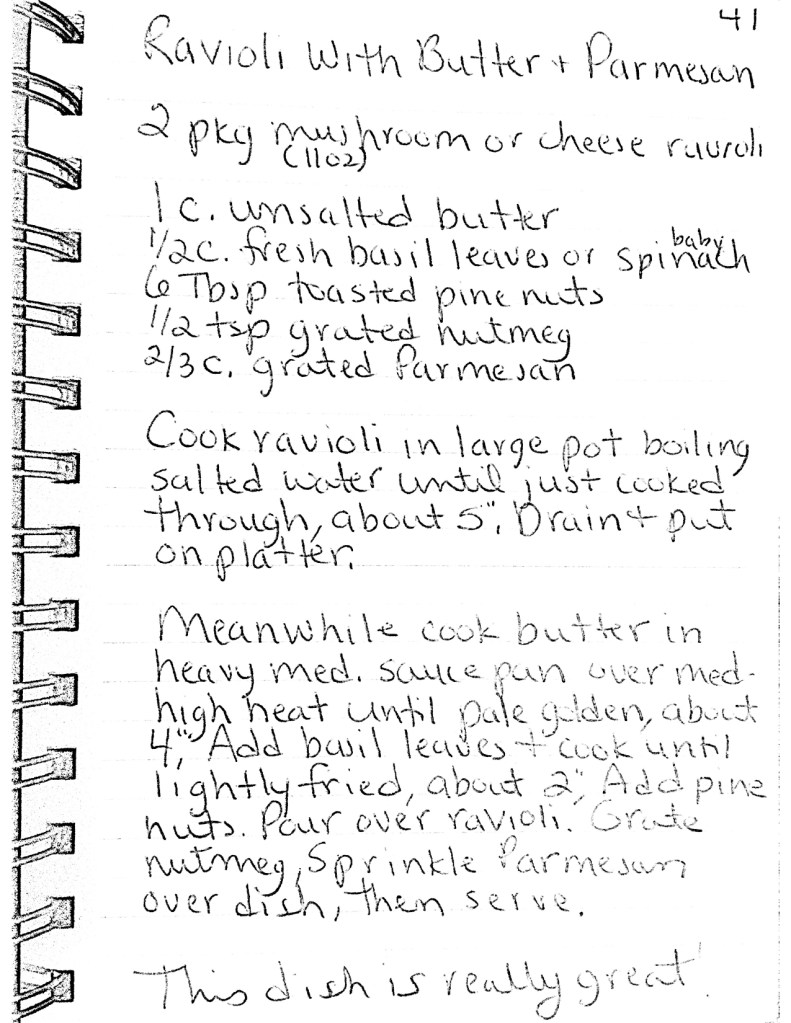 41
Ravioli With Butter + Parmesan
2 pkg mushroom or cheese ravioli
(11oz)
1 c. unsalted butter
1/2 c. fresh basil leaves or baby spinach
6 Tbsp toasted pine nuts
1/2 tsp grated nutmeg
2/3 c. grated Parmesan
Cook ravioli in large pot boiling
salted water until just cooked
through, about 5". Drain + put
on platter.
Meanwhile cook butter in
heavy med. sauce pan over med-
high heat until pale golden, about
4". Add basil leaves + cook until
lightly fried, about 2". Add pine
nuts. Pour over ravioli. Grate
nutmeg, Sprinkle Parmesan
over dish, then serve.
This dish is really great!